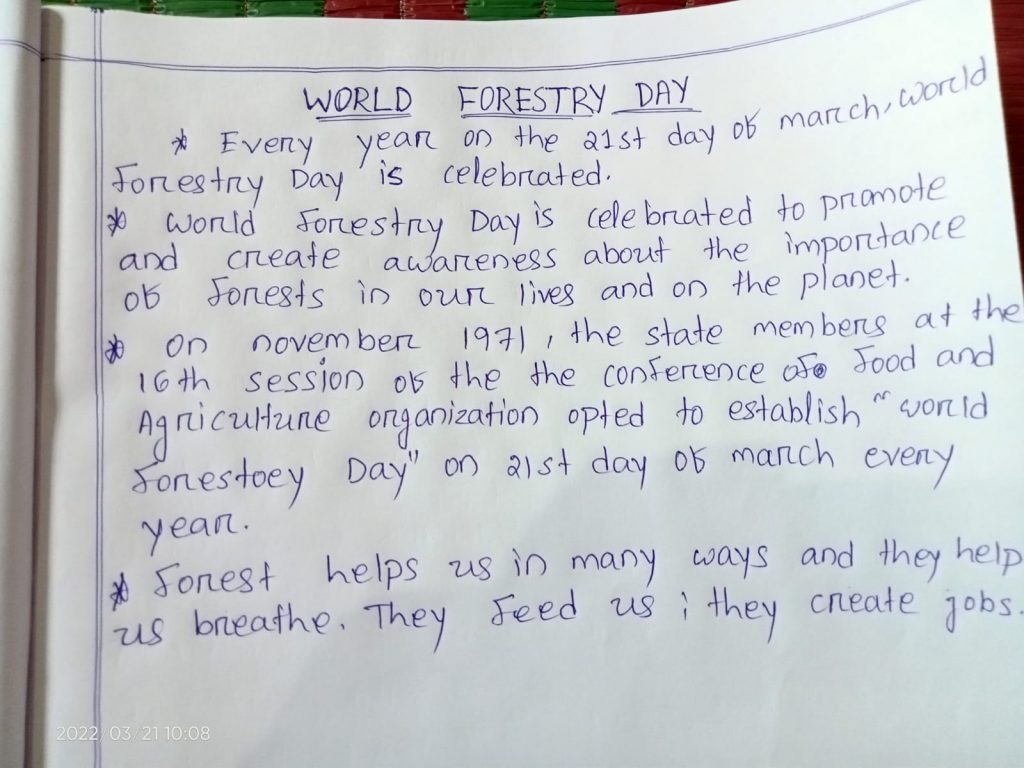 WORLD FORESTRY DAY
* Every year on the 21st day of march, world
Forestry Day is celebrated.
* World Forestry Day is celebrated to promote
and create awareness about the importance
of forests in our lives and on the planet.
* On november 1971, the state members at the
16th session of the the conference of food and
Agriculture organization opted to establish "world
Forestoey Day" on 21st day of march every
year.
* Forest helps us in many ways and they help
us breathe. They feed us ; they create jobs.
2022/03/21 10:08